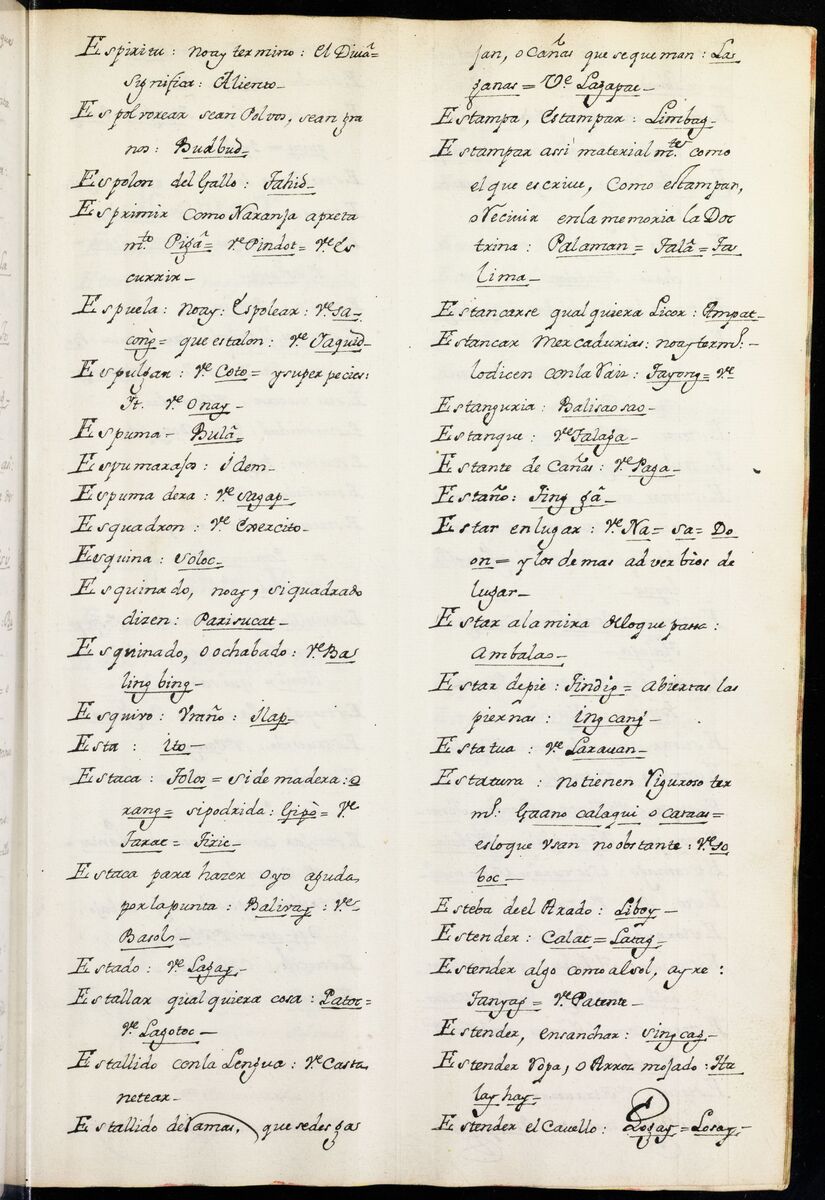 Espiritu: noay termino: el Divâ=
significa: Aliento_
Espolvorear sean Polvos, sean gra
nos: Budbud_
Espolon del Gallo: Tahid_
Esprimir como Naranja apreta
mto. Pigâ= Ve. Pindot= Ve. es
currir_
Espuela: noay: Espolear: Ve. sa_
cong= que estalon: Ve.
Espulgar: Ve. Coto= ysuper pecies:
It. Ve. onay_
Espuma_ Bulâ_
Espumarajo: idem_
Espuma dera: Ve. sagap_
Esquadron: Ve. Exercito_
Esquina: soloc_
Esquinado, noay, si quadrado
dizen: Parisucat_
Esquinado, o ochabado: Ve. Ba
ling bing_
Esquivo: Vraño: Ilap_
Esta: ito_
Estaca: Tolos= side madera: o
rang= sipodrida: Gipò= Ve
Tarac= Tiric_
Estaca para hazer oyo aguda
por la punta: Balivay: Ve.
Basol_
Estado: Ve. Lagay_
Estallar qual quiera cosa: Patoc=
Ve. Lagotoc_
Estallido con la Lengua: Ve. Casta
netear_
Estallido de ramas, que sedesga
jan, o Cañas que se queman: La
ganas= Ve. Lagapac_
Estampa, estampar: Limbag_
Estampar assi material mte. como
el que escrive, como estampar,
o Recivir en la memoria la Doc
trina: Palaman= Talâ= Ta
lima_
Estancarse qual quiera Licor: Ampat_
Estancar Mercadurias: noay termo. _
lo dicen con la raiz: Tayong= Ve
Estanguria: Balisaosao_
Estanque: Ve. Talaga_
Estante de Cañas: Ve. Paga_
Estaño: Ting gâ_
Estar en lugar: Ve. Na= sa= Do
on= y los de mas ad verbios de
lugar_
Estar ala mira de loque pasa:
Ambalao_
Estar de pie: Tindig= Abiertas las
piernas: ing cang_
Estatua: Ve. Larauan_
Estatura: no tienen riguroso ter
mo. Gaano calaqui o cataas=
es loque vsan no obstante: Ve. so
boc_
Esteba de el Arado: Liboy_
Estender: Calat= Latag_
Estender algo como al sol, ayre:
Tanyag= Ve. Patente_
Estender, ensanchar: singcag_
Estender ropa, o Arroz mojado: Ha
lay hay_
Estender el Cavello: Logay= Losay_